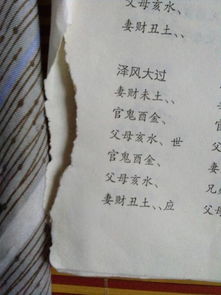 父母亥水、
妻财丑土、、
泽风大过
妻财未土、、
官鬼酉金、
父母亥水、世
官鬼酉金、
父母亥水、
妻财丑土、、应
父
兄
父